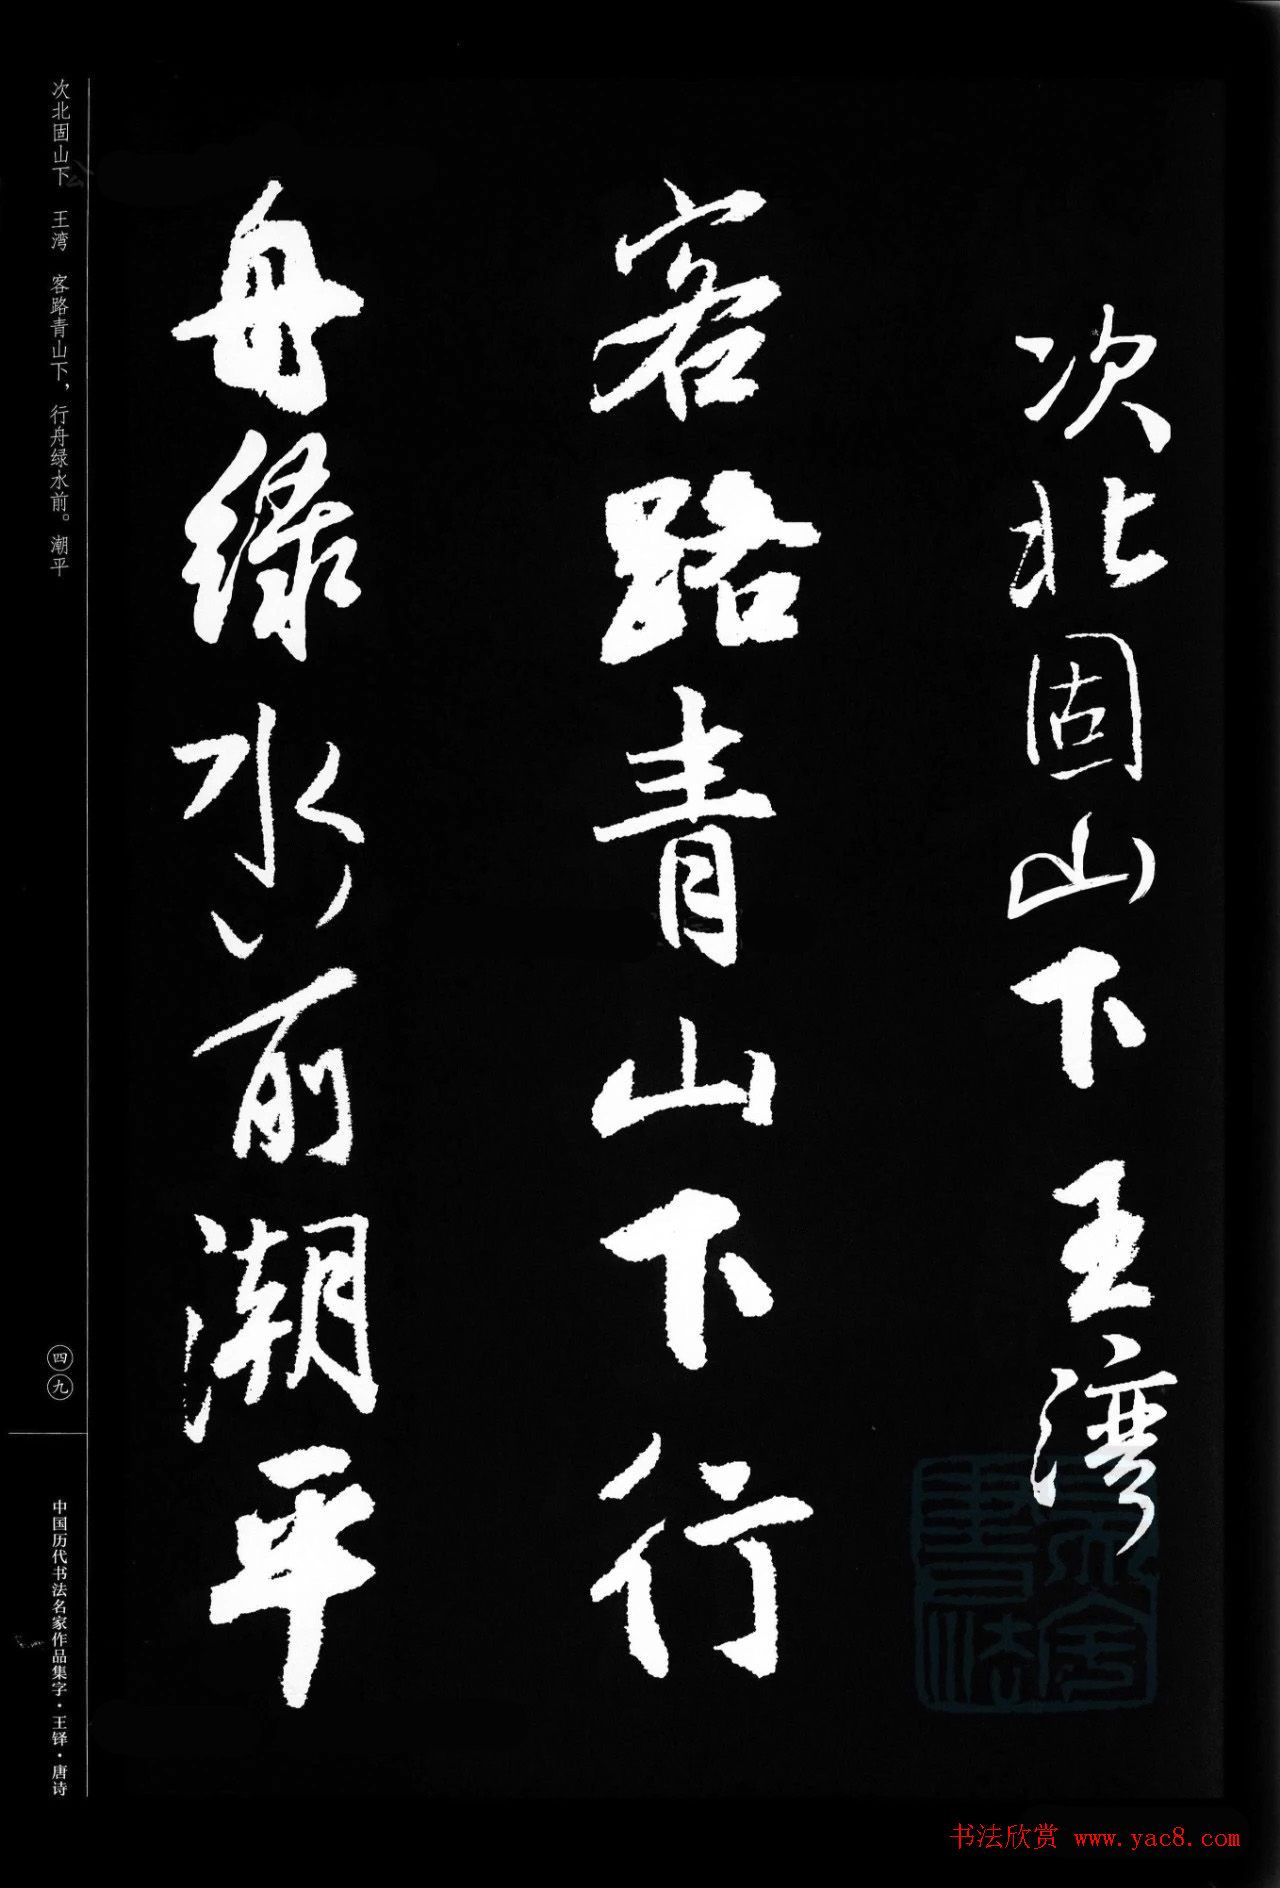 次北固山下 王湾
客路青山下行
舟绿水前潮平
次北固山下　王湾　客路青山下，行舟绿水前。潮平
四九
中国历代书法名家作品集字·王铎·唐诗
书法欣赏 www.yac8.com